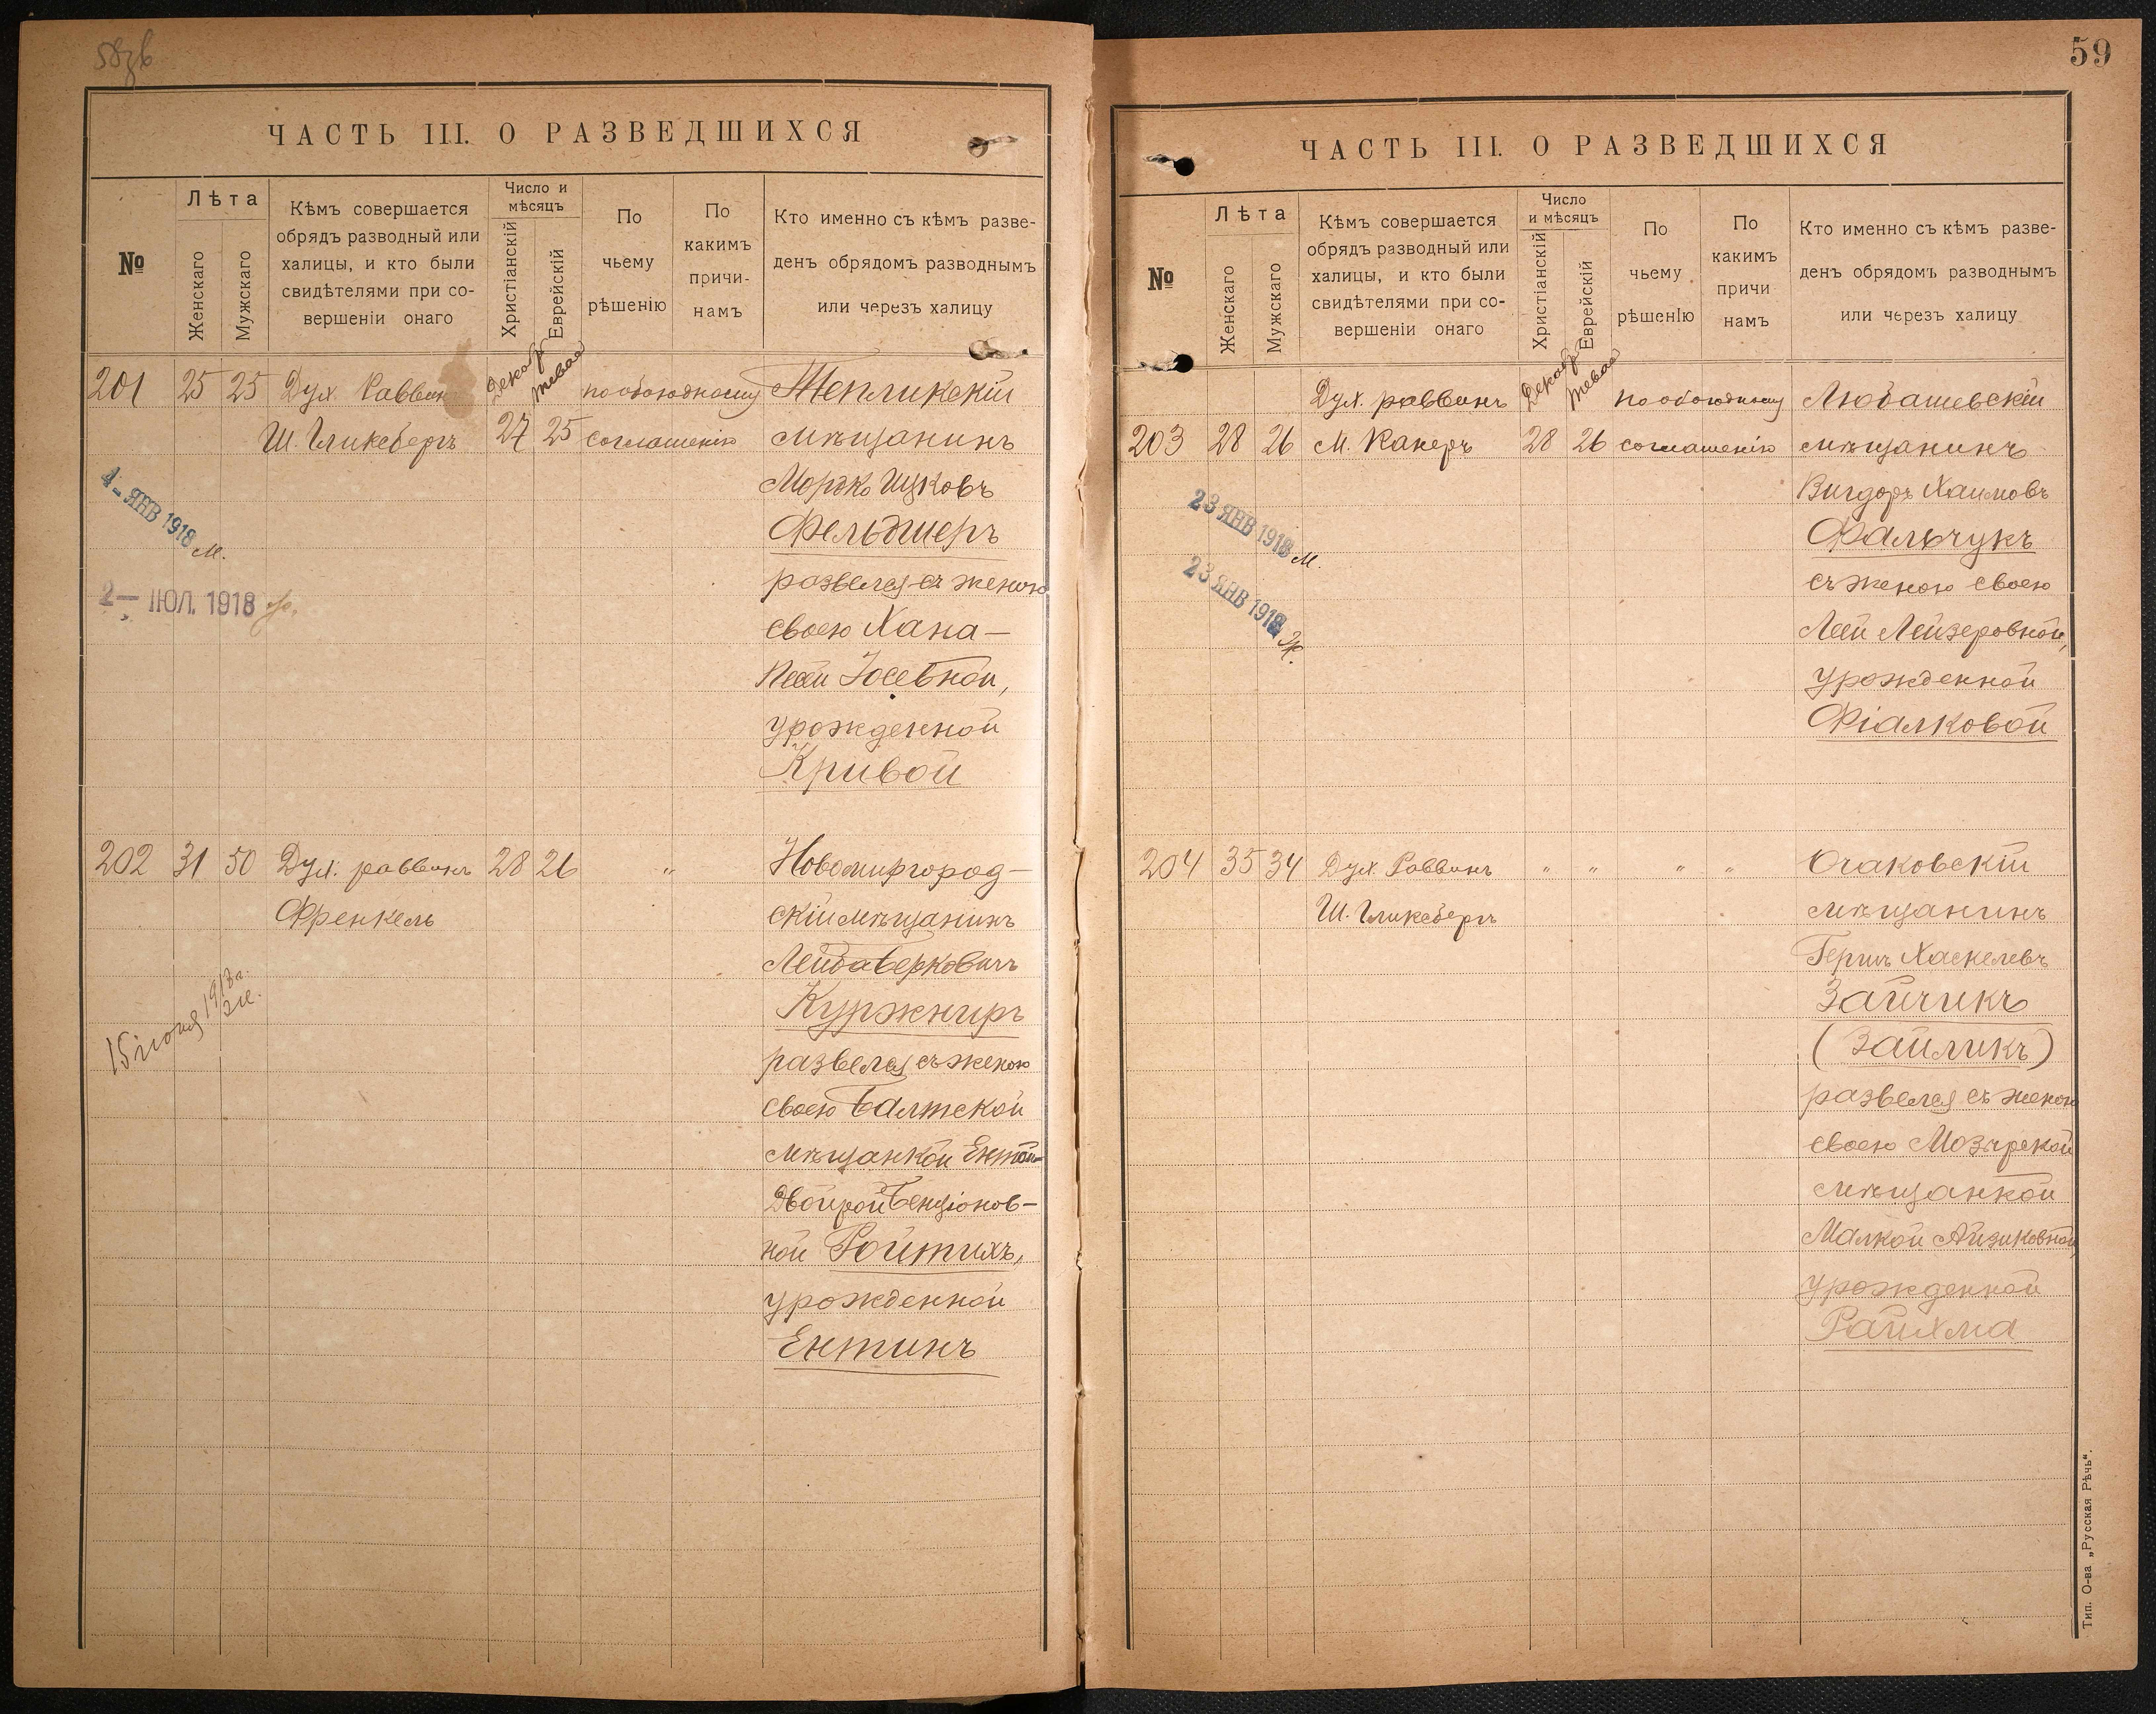 58зв
ЧАСТЬ III. О РАЗВЕДШИХСЯ
№
Лѣта
Женскаго
Мужскаго
Кѣмъ совершается
обрядъ разводный или
халицы, и кто были
свидѣтелями при со-
вершеніи онаго
Число и
мѣсяцъ
Христіанскій
Еврейскій
По
чьему
рѣшенію
По
какимъ
причи-
намъ
Кто именно съ кѣмъ разве-
денъ обрядомъ разводнымъ
или черезъ халицу
201 25 25 Дух. Раввин Декабр Тевас по обоюдному Тепликскій
Ш. Гликсбергъ 27 25 соглашенію мѣщанинъ
Мордко Ицковъ
4 - ЯНВ 1918 м.
Фельдшеръ
развелся съ женою
2 — ІЮЛ. 1918
своею Хана —
Песи Іосевной,
урожденной
Кривой
202 31 50 Дух. раввинъ 28 26 " Новомиргород-
Френкель скій мѣщанинъ
Лейба Берковичъ
Куржниръ
15 іюня 1918 г.
развелся съ женою
своею Балтской
мѣщанкой Ентой-
Двойрой Бенціонов-
ной Ройтихъ,
урожденной
Ентинъ
59
ЧАСТЬ III. О РАЗВЕДШИХСЯ
№
Лѣта
Женскаго
Мужскаго
Кѣмъ совершается
обрядъ разводный или
халицы, и кто были
свидѣтелями при со-
вершеніи онаго
Число
и мѣсяцъ
Христіанскій
Еврейскій
По
чьему
рѣшенІю
По
какимъ
причи
намъ
Кто именно съ кѣмъ разве-
денъ обрядомъ разводнымъ
или черезъ халицу
Дух. раввинъ Декабр Тевас по обоюдному Любашевскій
203 28 26 М. Канеръ 28 26 соглашенію мѣщанинъ
Вигдоръ Хаимовъ
23 ЯНВ 1918 м.
Фальчукъ
съ женою своею
23 ЯНВ 1918 Ж.
Леей Лейзеровной,
урожденной
Фіалковой
204 35 34 Дух. Раввинъ " " " " Очаковскій
Ш. Гликсбергъ мѣщанинъ
Гершъ Хаскелевъ
Зайчикъ
(Зайликъ)
развелся съ женою
своею Мозырской
мѣщанкой
Малкой Айзиковной,
урожденной
Райхма
Тип. О-ва „Русская Рѣчь“.